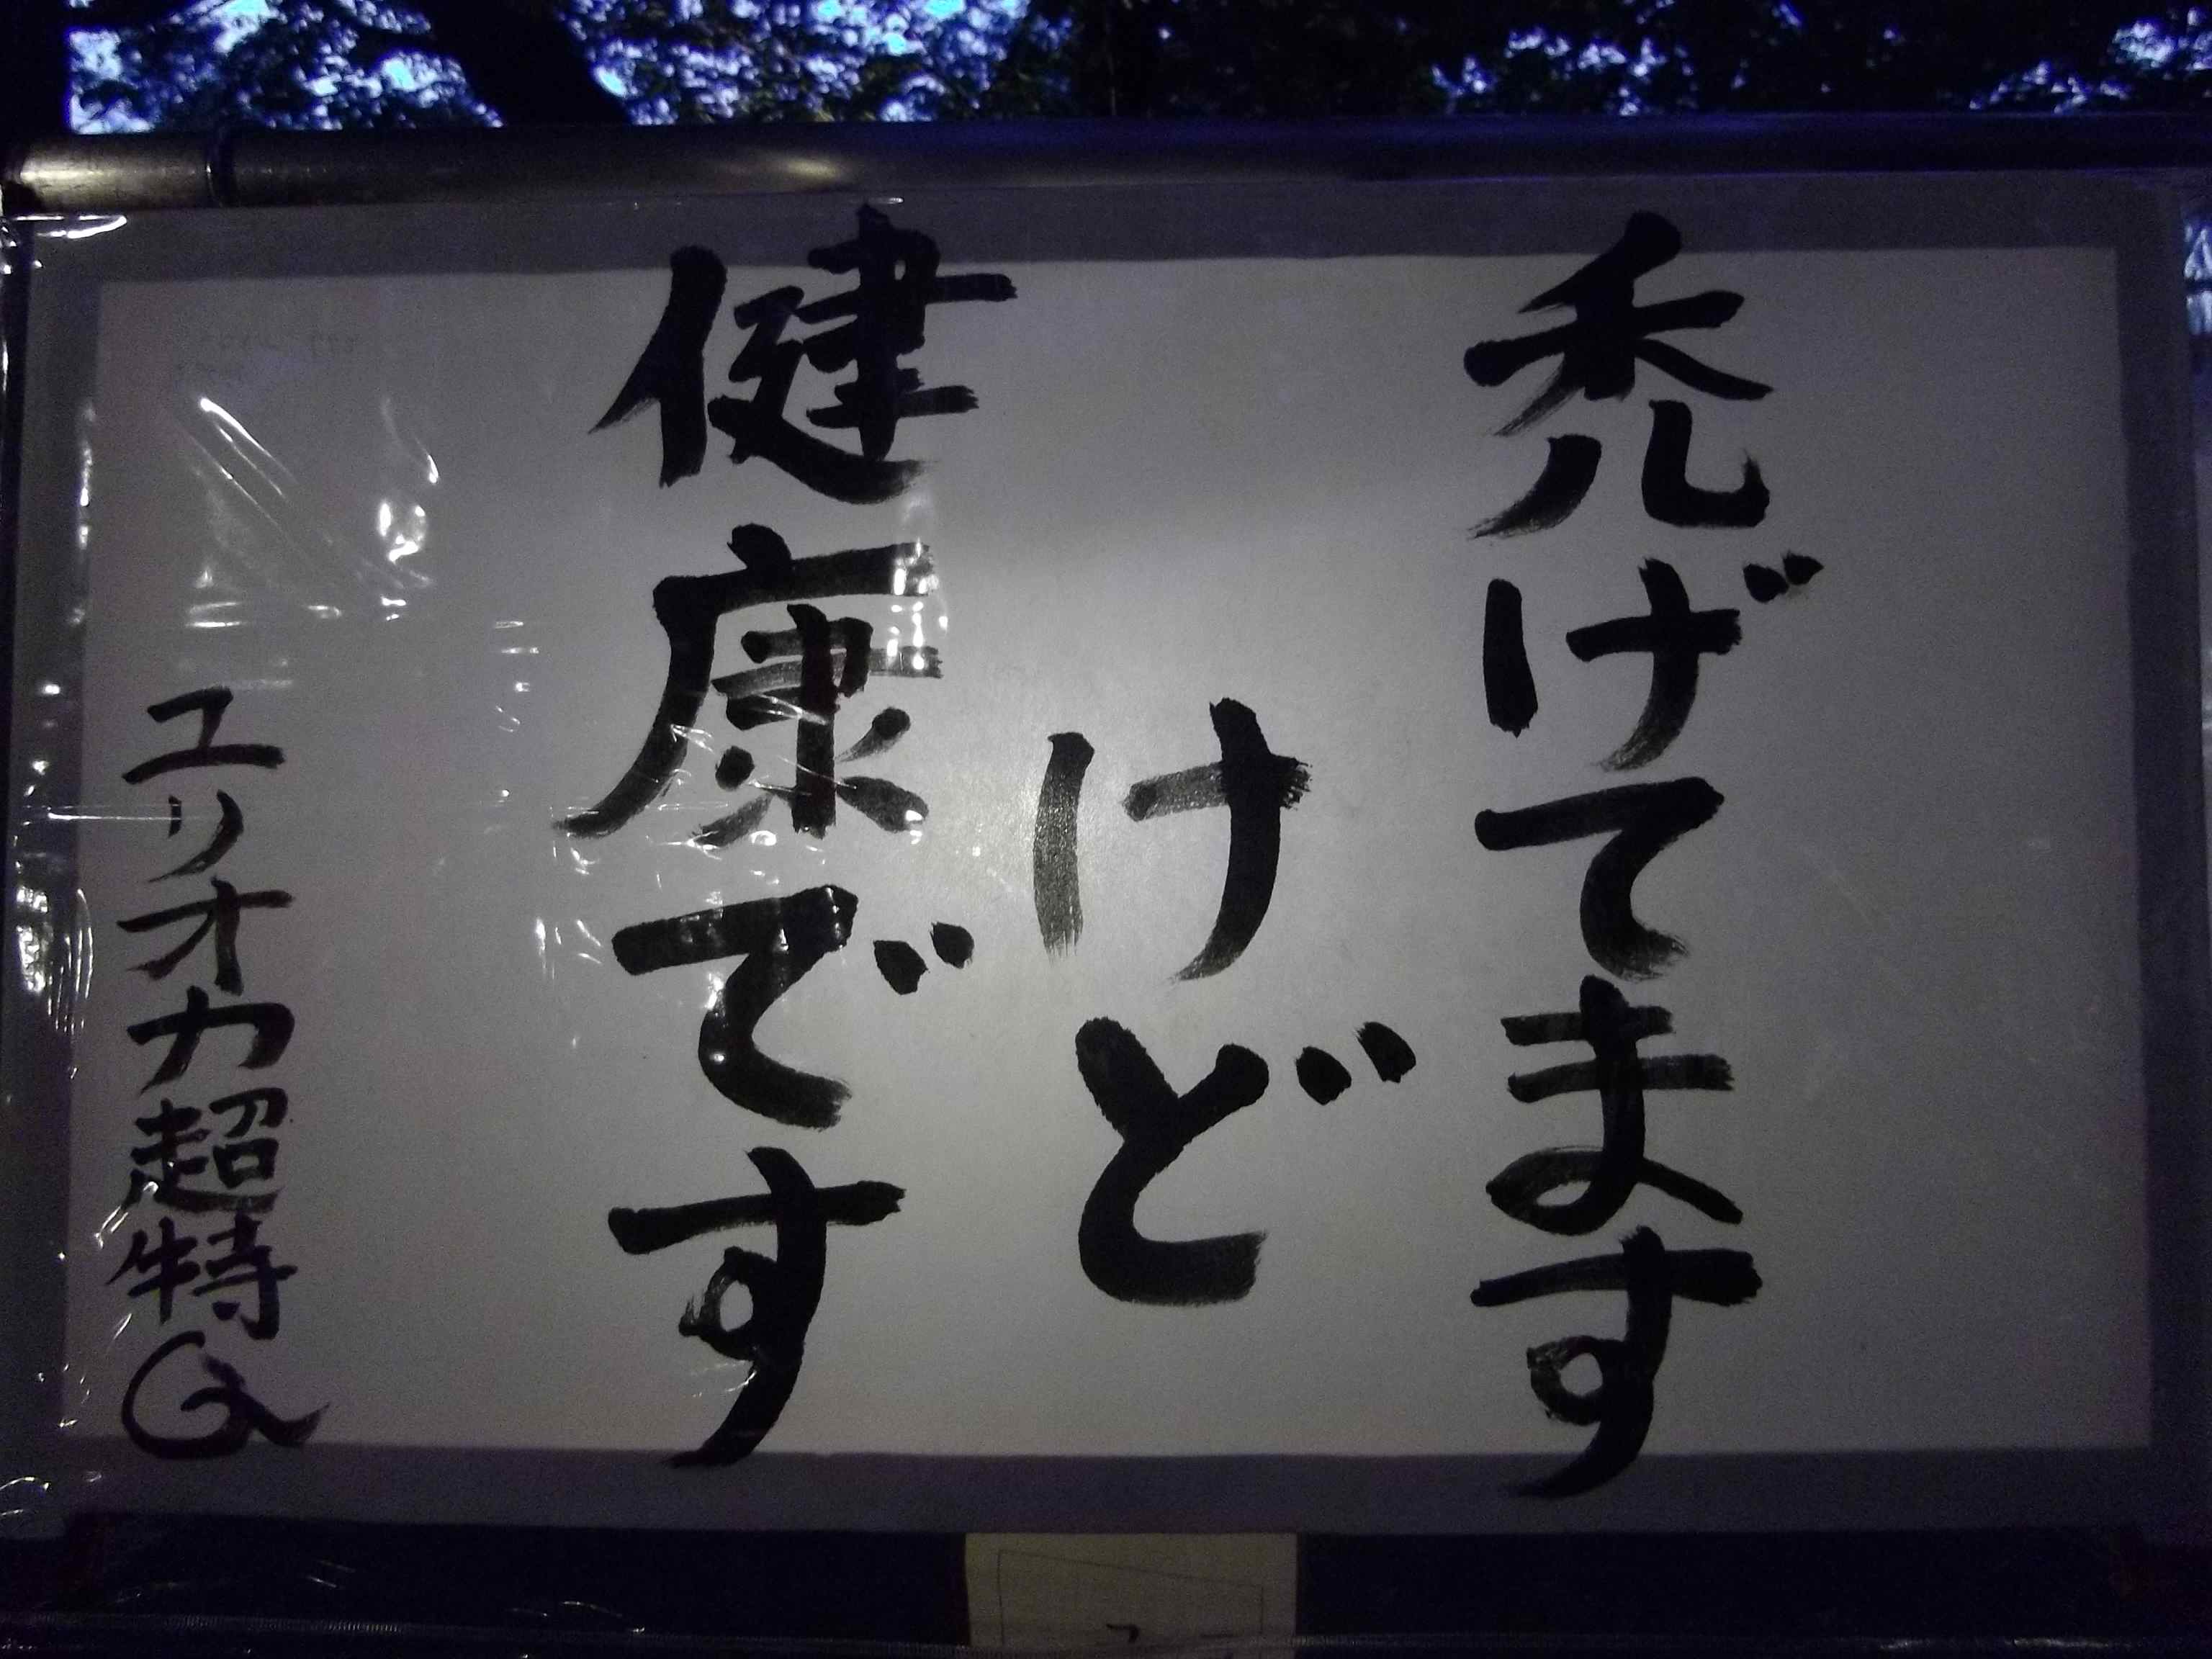 禿げてます
けど
健康です
ユリオカ超特Q